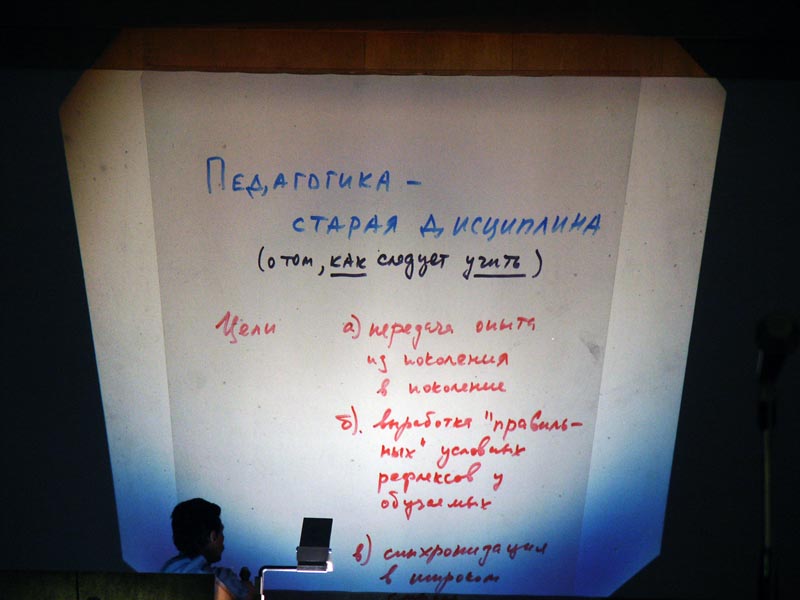 Педагогика –
старая дисциплина
(о том, как следует учить)
Цели а) передача опыта
из поколения
в поколение
б). выработка "правиль-
ных" условных
рефлексов у
обучаемых
в) синхронизация
в широком